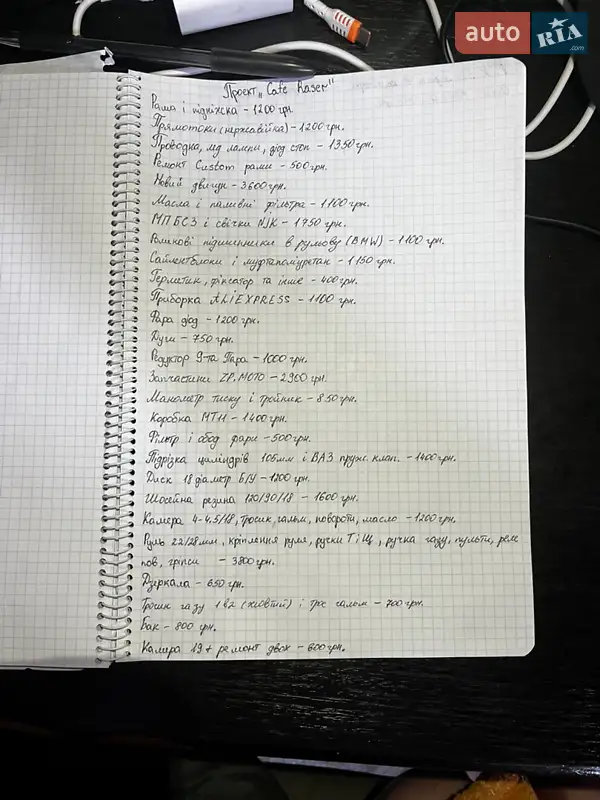 auto RIA .com
Проект „Cafe Raser"
Рама і підніжска - 1200 грн
Прямотоки (нержавійка) - 1200 грн.
Проводка, лед лампи, діод стоп - 1350 грн.
Ремонт Custom рами - 500 грн.
Новий двигун - 3600 грн.
Масла і паливні фільтра - 1100 грн.
МПБСЗ і свічки NJK - 1750 грн.
підшипники в рульову (BMW) - 1100 грн.
Сайлентблоки і муфтаполіуретан - 1150 грн.
Герметик, фіксатор та інше - 400 грн.
Приборка ALIEXPRESS - 1100 грн.
Фара діод - 1200 грн.
Дуги - 750 грн.
Редуктор 9-та Пара - 1000 грн.
Запчастини ZP.MOTO - 2900 грн.
Манометр тиску і тройник - 850 грн.
Коробка МТ11 - 1400 грн.
Фільтр і обод фари - 500 грн.
Підрізка циліндрів 105мм і ВАЗ пруж. клап. - 1400 грн.
Диск 18 діаметр Б/У - 1200 грн.
Шосейна резина 120/90/18 - 1600 грн.
Камера 4-4,5/18, тросик гальм, повороти, масло - 1200 грн.
Руль 22/28мм, кріплення руля, ручки Т і Щ, ручка газу, пульти, реле
пов, гріпси - 3800 грн.
Дзеркала - 650 грн.
Тросик газу 1 в 2 (жовтий) і трос гальм - 700 грн.
Бак - 800 грн.
Камера 19 + ремонт двох - 600 грн.